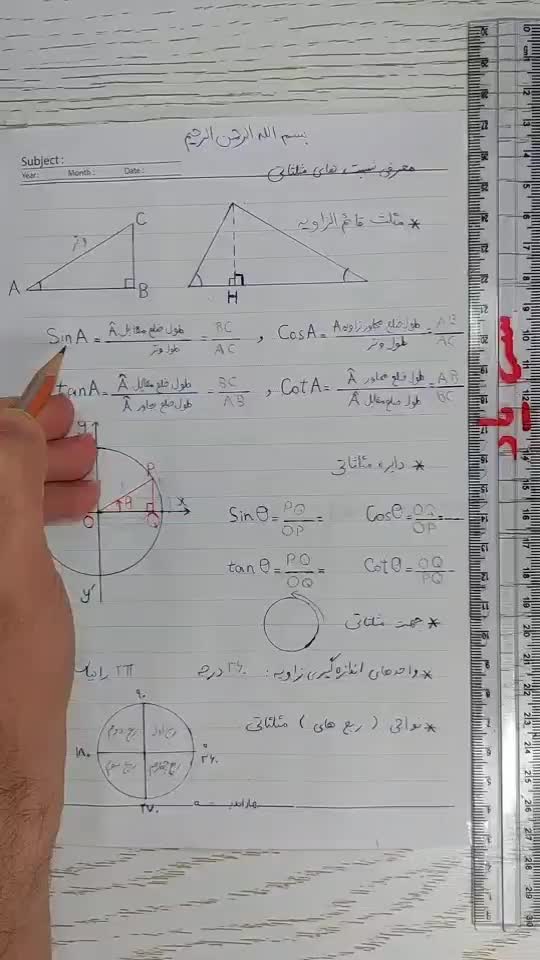 بسم الله الرحمن الرحیم
Subject :
Year : Month : Date :
معرفی نسبت های مثلثاتی
* مثلث قائم الزاویه
C
وتر
A
B
H
SinA = طول ضلع مقابل Â / طول وتر = BC / AC , CosA = طول ضلع مجاور زاویه A / طول وتر = AB / AC
tanA = طول ضلع مقابل Â / طول ضلع مجاور Â = BC / AB , CotA = طول ضلع مجاور Â / طول ضلع مقابل Â = AB / BC
y
* دایره مثلثاتی
P
θ
x
O
Q
y'
Sinθ = PQ / OP = Cosθ = OQ / OP =
tanθ = PQ / OQ = Cotθ = OQ / PQ
* جهت مثلثاتی
* واحدهای اندازه گیری زاویه : ۳۶۰ درجه ۲π
* نواحی ( ربع های ) مثلثاتی
۹۰
ربع دوم ربع اول
۱۸۰
۰
۳۶۰
ربع سوم ربع چهارم
۲۷۰